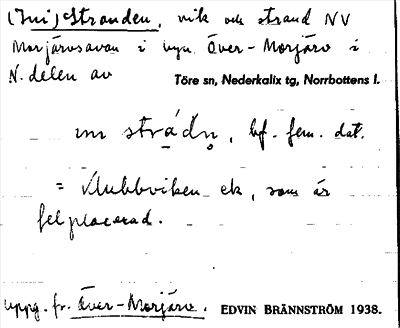 (Ini) Stranden, vik och strand NV
Morjärvsavan i byn Över-Morjärv i
N. delen av Töre sn, Nederkalix tg, Norrbottens l.
ını strádn̥, bf. fem. dat.
= Klubbviken ek, som är
felplacerad.
uppg. fr. Över-Morjärv. EDVIN BRÄNNSTRÖM 1938.